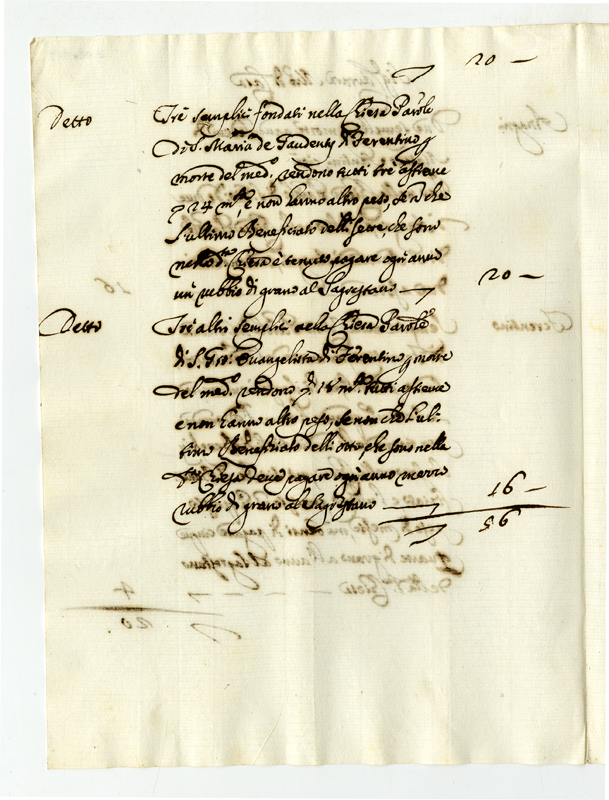 20 —
Detto Tre semplici fondati nella Chiesa Paro.le
di S. Maria de Gaudenti di Ferentino p
morte del med.o rendono tutti trè assieme
p 24 m.ta, e non hanno altro peso, se nõ che
l'ultimo Beneficiato delli sette, che sono
nella d.ta Chiesa è tenuto pagare ogni anno
un rubbio di grano al Sagrestano — 20 —
Detto Trè altri semplici nella Chiesa Paro.le
di S. Gio: Evangelista di Ferentino p morte
del med.o rendono 18 m.ta tutti assieme
e non hanno altro peso, se non che l'ul-
timo Beneficiato delli otto, che sono nella
d.ta Chiesa deve pagare ogni anno mezzo
rubbio di grano al Sagrestano — 16 —
56